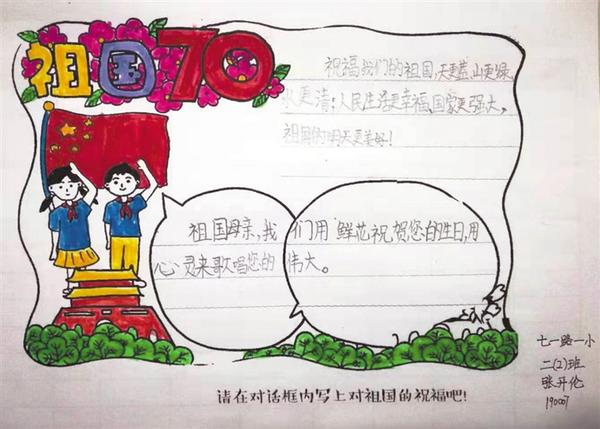 祖国70
祝福我们的祖国,天更蓝,山更绿,
水更清;人民生活更幸福,国家更强大。
祖国的明天更美好!
祖国母亲,我们用鲜花祝贺您的生日,用
心灵来歌唱您的伟大。
七一路一小
二(2)班
张开伦
190007
请在对话框内写上对祖国的祝福吧!